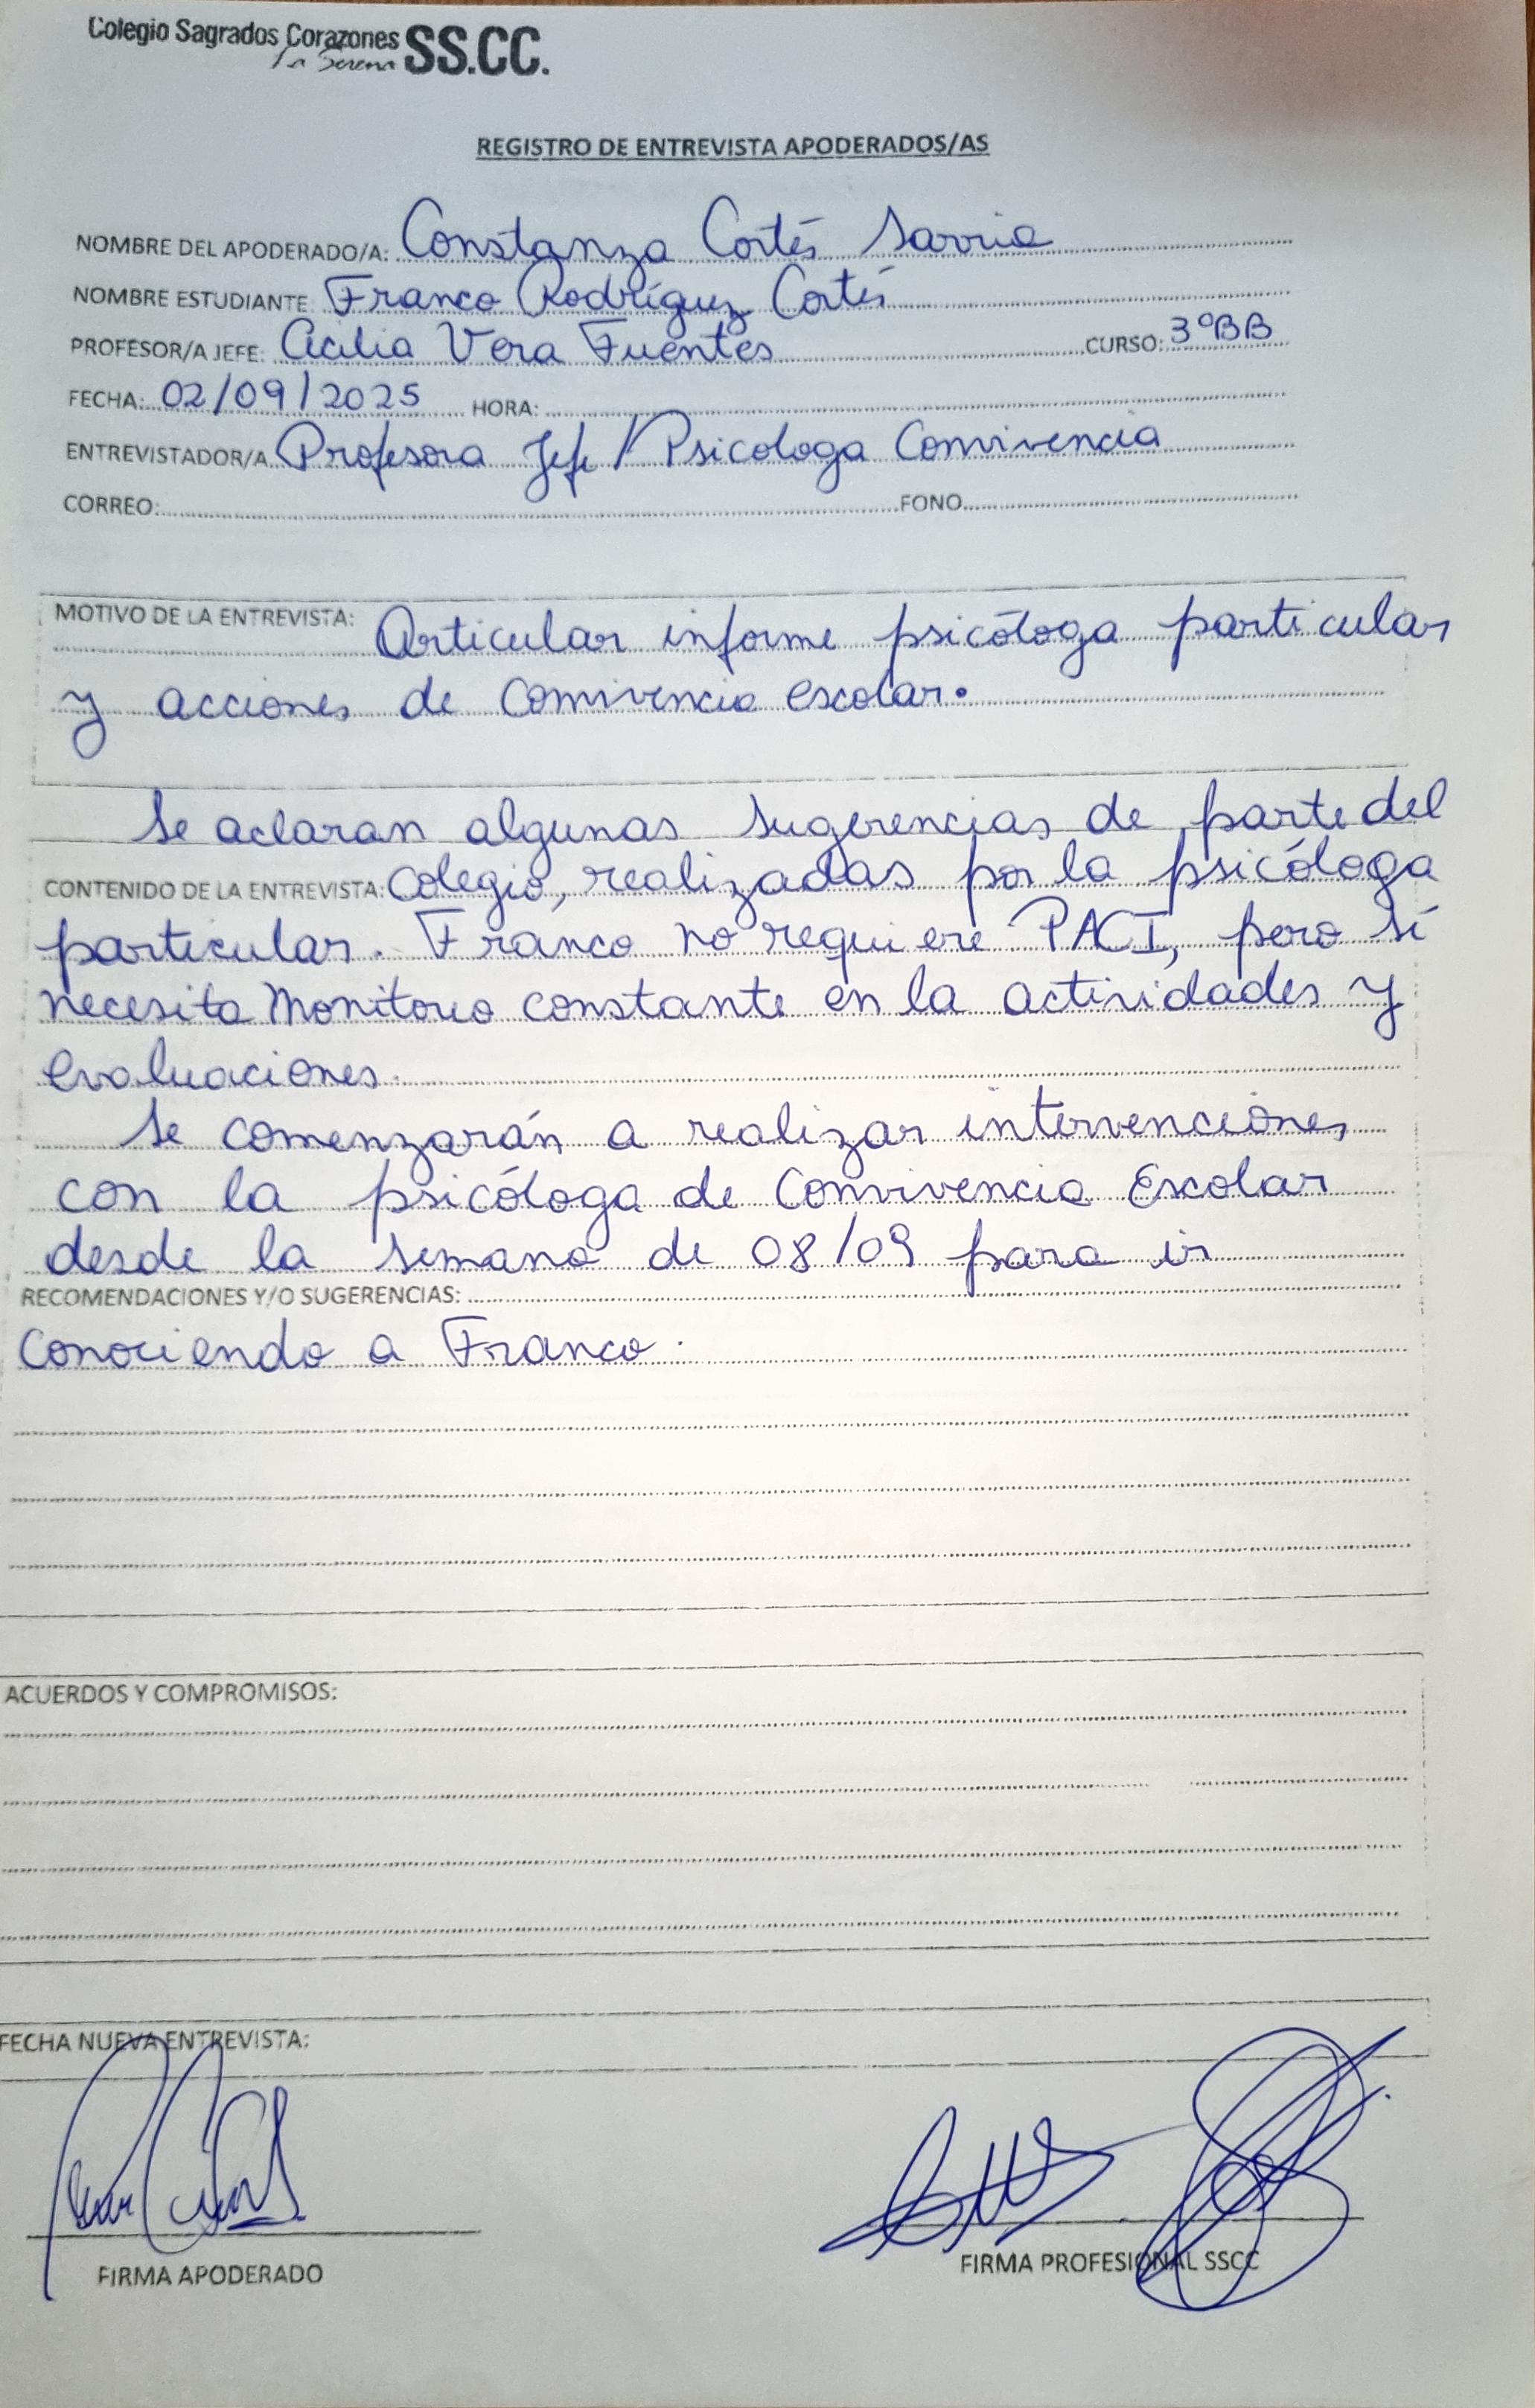 Colegio Sagrados Corazones SS.CC.
La Serena
REGISTRO DE ENTREVISTA APODERADOS/AS
NOMBRE DEL APODERADO/A: Constanza Cortés Sarria
NOMBRE ESTUDIANTE: Franco Rodríguez Cortés
PROFESOR/A JEFE: Cecilia Vera Fuentes CURSO: 3°BB
FECHA: 02/09/2025 HORA:
ENTREVISTADOR/A Profesora Jefe / Psicologa Convivencia
CORREO: FONO
MOTIVO DE LA ENTREVISTA: Articular informe psicóloga particular
y acciones de convivencia escolar.
Se aclaran algunas sugerencias de parte del
CONTENIDO DE LA ENTREVISTA: colegio, realizadas por la psicóloga
particular. Franco no requiere PACI, pero sí
necesita monitoreo constante en la actividades y
evaluaciones.
Se comenzarán a realizar intervenciones
con la psicóloga de Convivencia Escolar
desde la semana de 08/09 para ir
RECOMENDACIONES Y/O SUGERENCIAS:
conociendo a Franco.
ACUERDOS Y COMPROMISOS:
FECHA NUEVA ENTREVISTA:
FIRMA APODERADO FIRMA PROFESIONAL SSCC